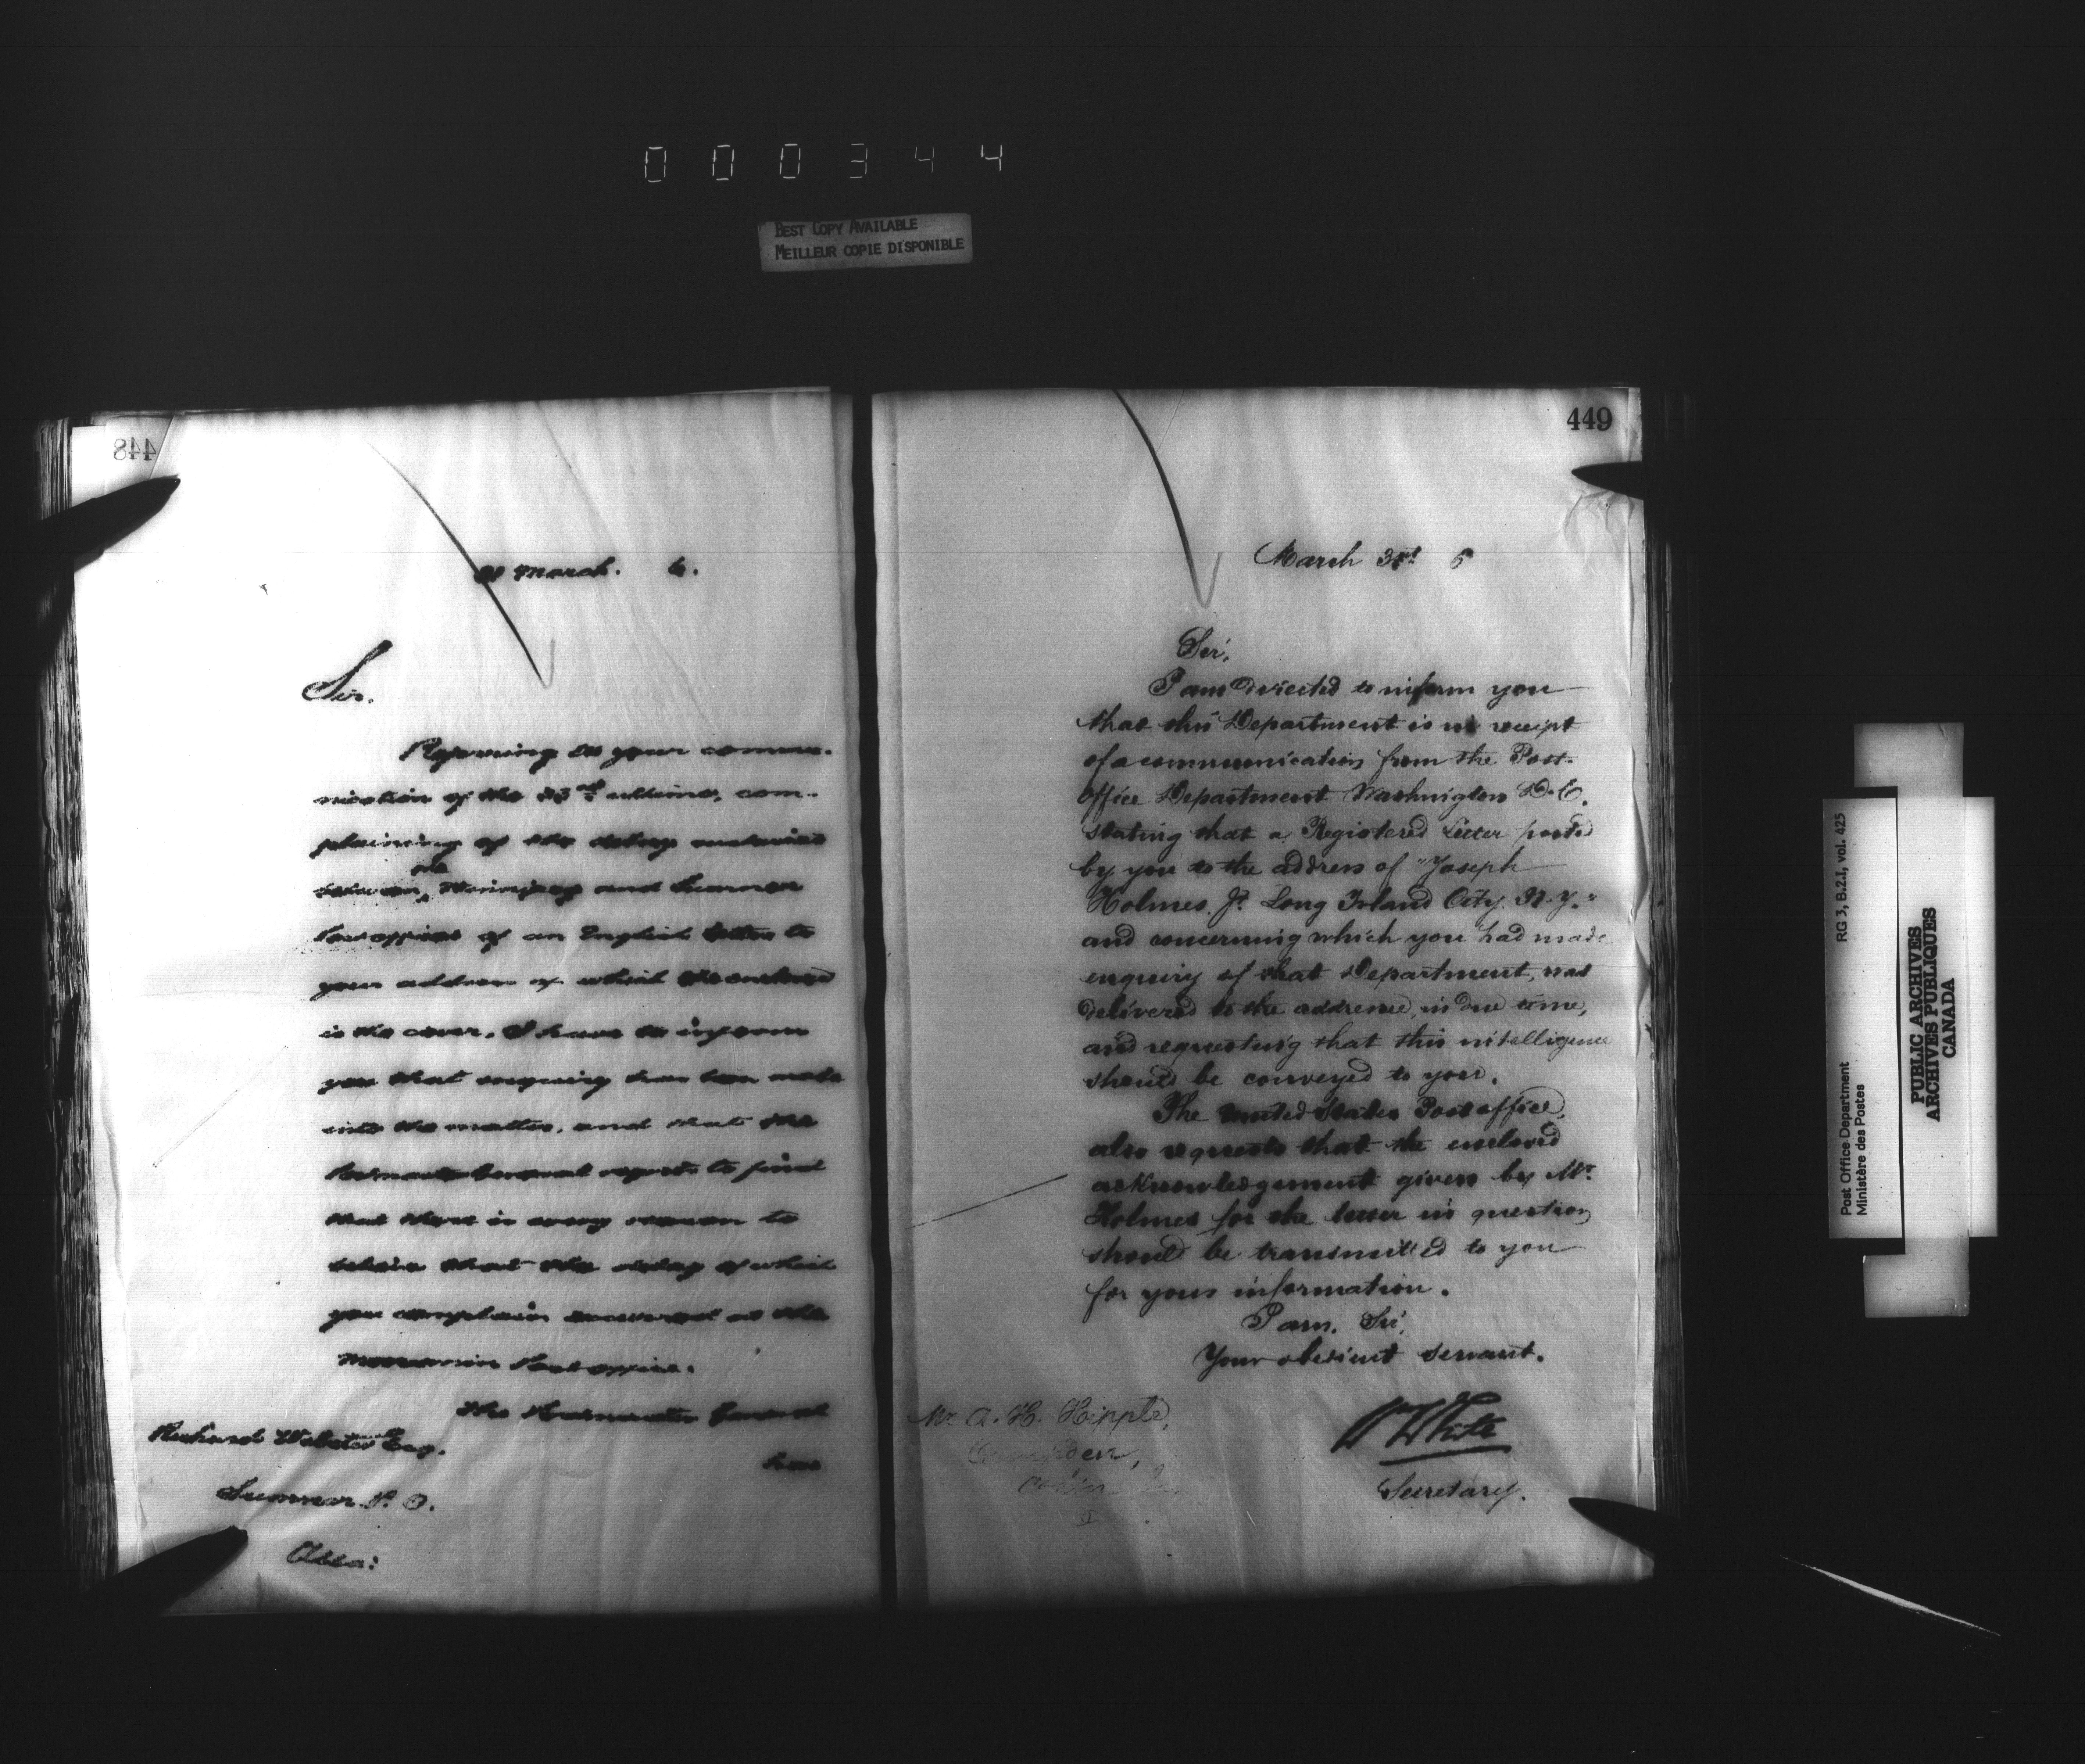 000344
BEST COPY AVAILABLE
MEILLEUR COPIE DISPONIBLE
448
31 March. 6.
Sir.
Referring to your commu-
nication of the 23rd ultimo, com-
plaining of the delay
between the Winnipeg and Sumner
Post offices of an English letter to
your address of which the enclosed
is the cover. I have to inform
you that enquiry has been made
into the matter, and that the
Postmaster General regrets to find
that there is every reason to
believe that the delay of which
you complain occurred at the
Moosomin Post office.
The Postmaster General
has
Richard Webster Esq.
Sumner P. O.
Assa:
449
March 31st 6
Sir,
I am directed to inform you
that this Department is in receipt
of a communication from the Post-
office Department Washington D.C.
stating that a Registered Letter posted
by you to the address of "Joseph
Holmes Jr. Long Island City N.Y."
and concerning which you had made
enquiry of that Department, was
delivered to the addressee, in due time,
and requesting that this intelligence
should be conveyed to you.
The United States Post office,
also requests that the enclosed
acknowledgement given by Mr.
Holmes for the letter in question
should be transmitted to you
for your information.
I am, Sir,
Your obedient servant.
W White
Secretary.
Mr A. H. Hipple,
Post Office Department
Ministère des Postes
RG 3, B.2.I, vol. 425
PUBLIC ARCHIVES
ARCHIVES PUBLIQUES
CANADA